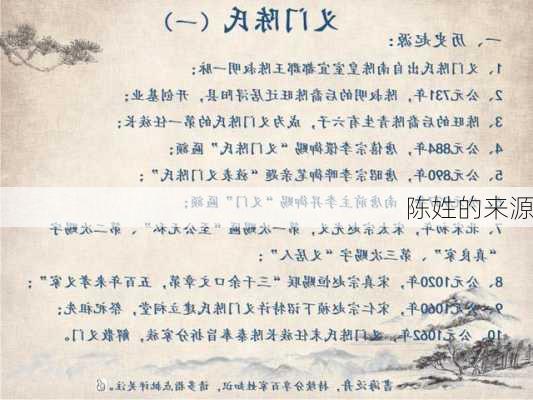 义门陈氏（一）
一、历史起源：
1、义门陈氏出自南陈皇室宜都郡王陈叔明一脉；
2、公元731年，陈叔明的后裔陈旺迁居浔阳县，开创基业；
3、陈旺的后裔陈青生有六子，成为义门陈氏的第一任族长；
4、公元884年，僖宗李儇御赐“义门陈氏”匾额；
5、公元890年，昭宗李晔御笔亲题“义门陈氏”；
南唐前主李昇御赐“义门”匾额；
陈姓的来源
7、北宋初年，宋太宗赵光义，第一次赐匾“至公无私”、第二次赐字
“真良家”、第三次赐字“义居人”；
8、公元1020年，宋真宗赵恒赐联“三千余口文章第，五百年来孝义家”；
9、公元1060年，宋仁宗赵祯下诏特许义门陈氏建立祠堂，祭祀祖先；
10、公元1062年，义门陈氏末任族长陈泰奉旨拆分家族，解散义门。
書海泛舟，持续分享百家姓知识，请多指点批评关注。